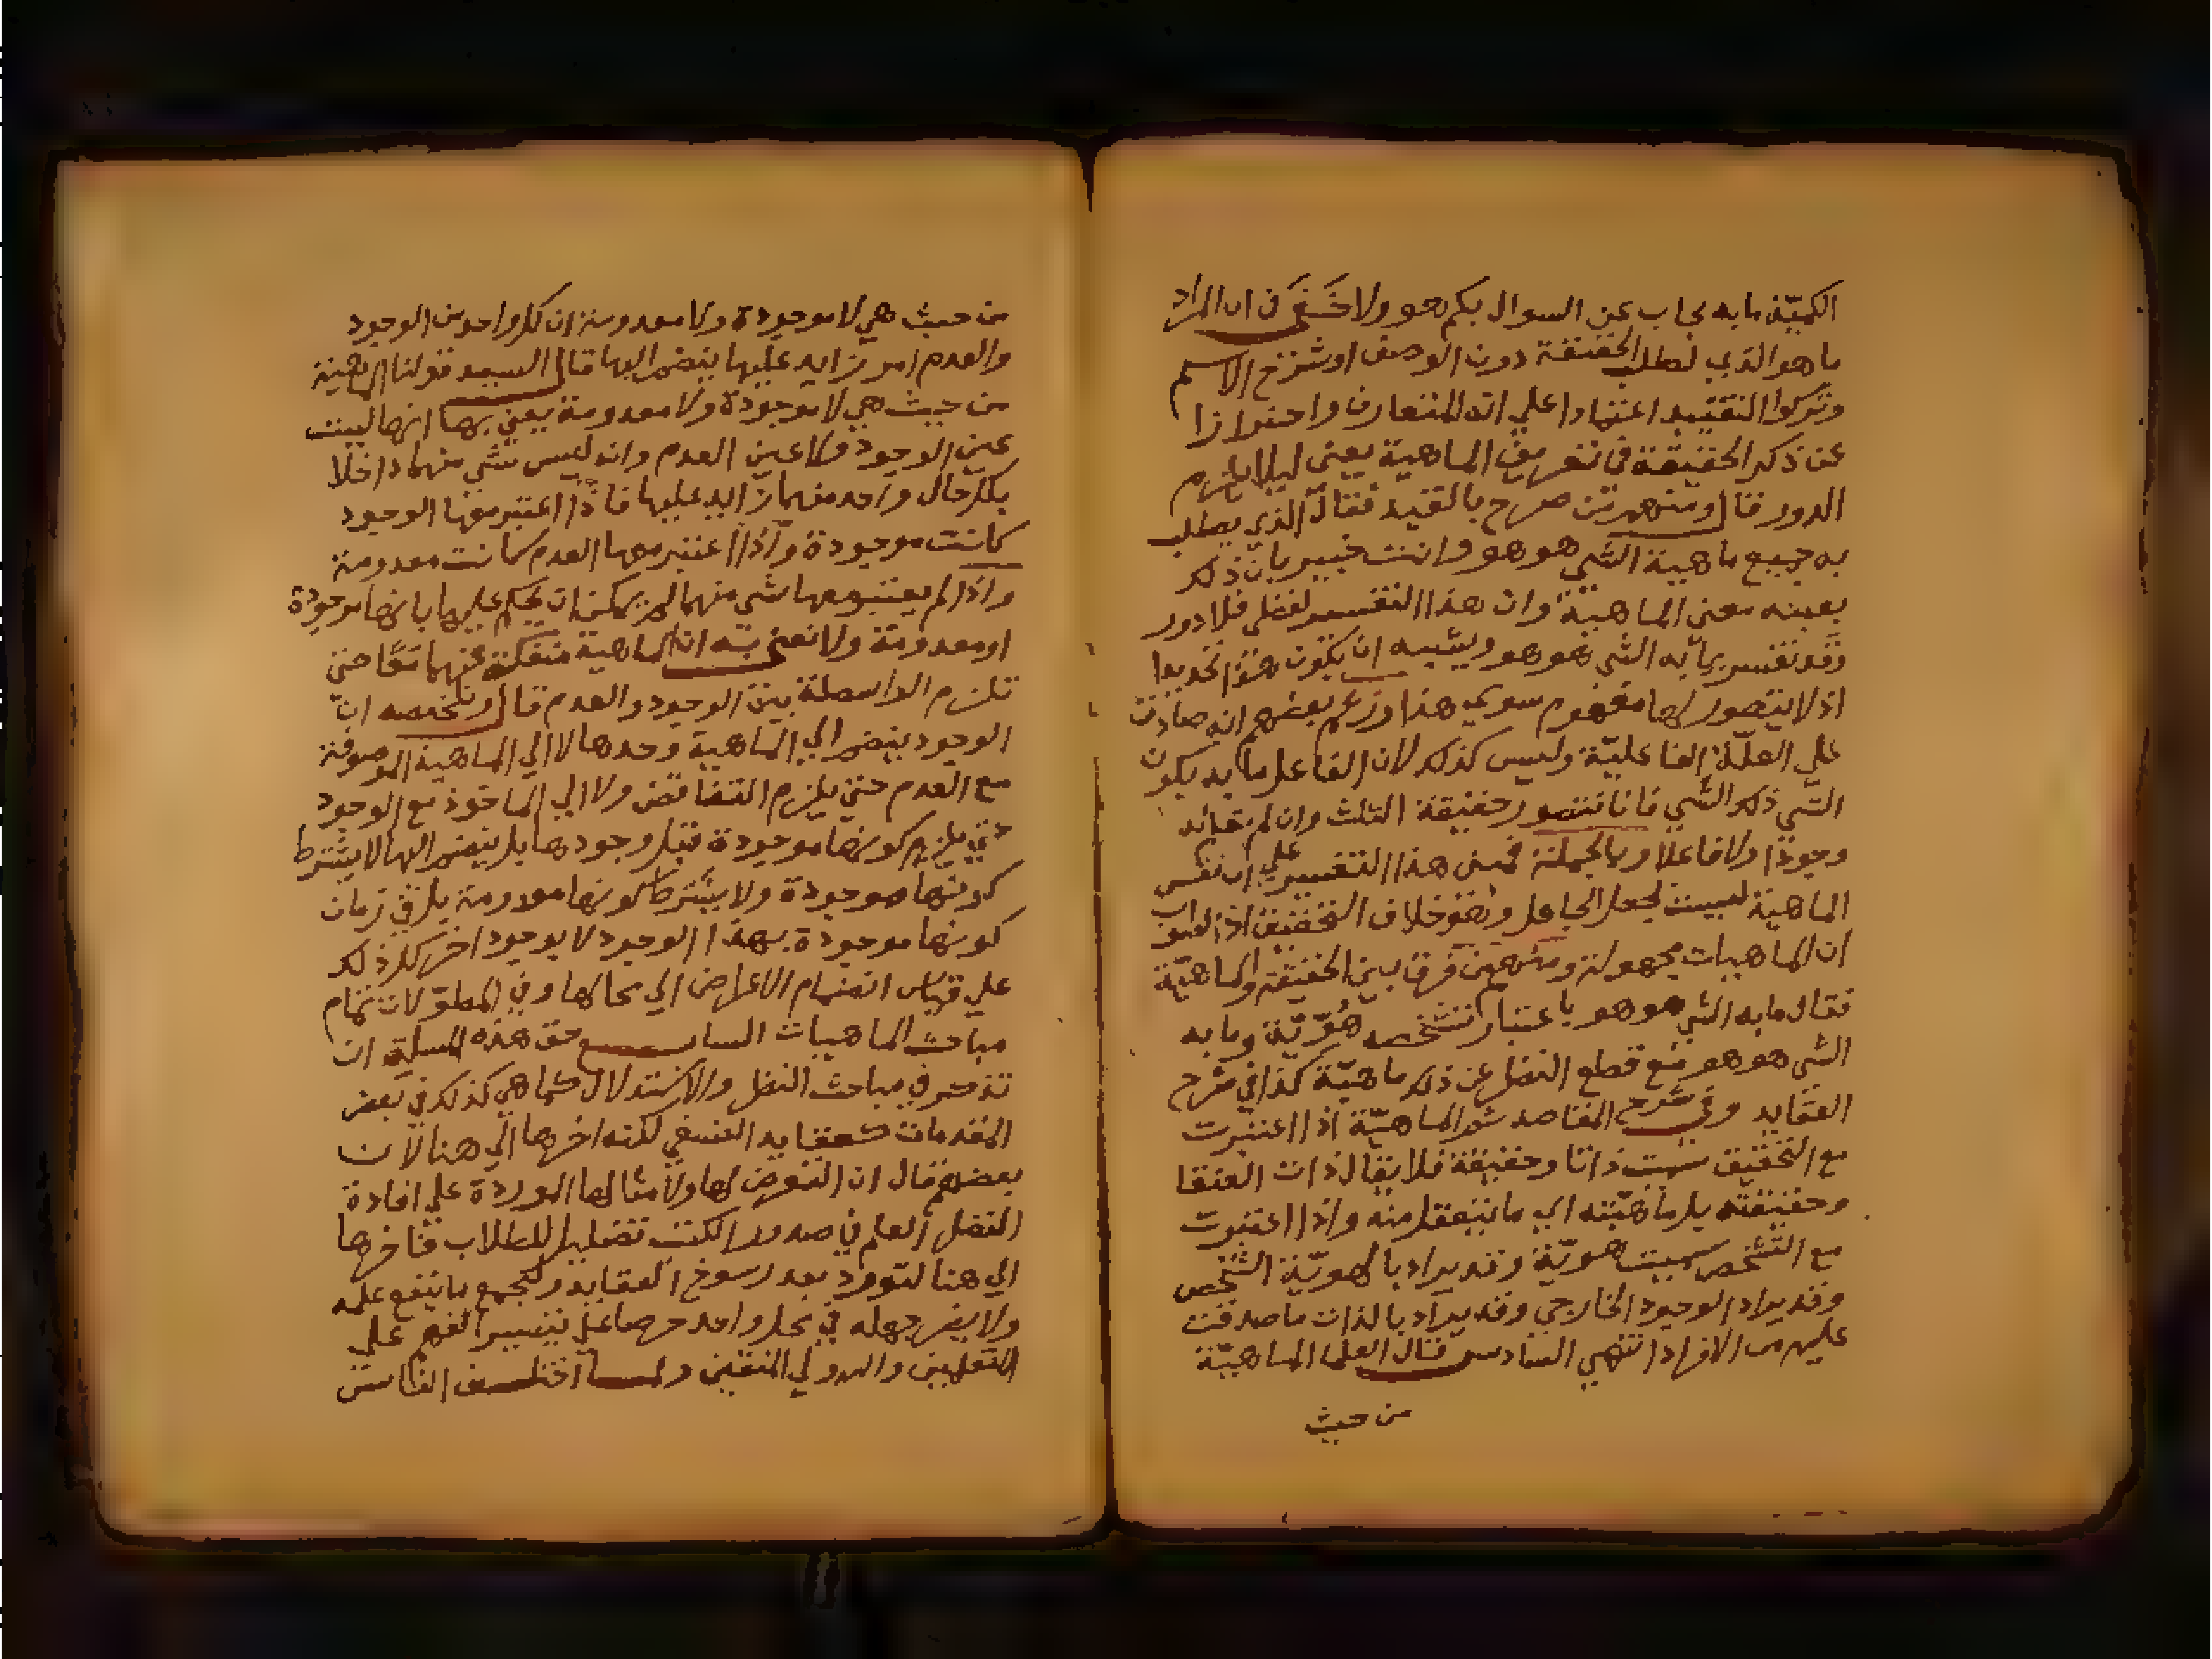 الكميّة ما به يجاب عن السوال بكم هو ولا خفى في ان المراد
ما هو الذي لطلب الحقيقة دون الوصف او شرح الاسم
وتركوا التقييد اعتمادا علي انه المتعارف واحترازا
عن ذكر الحقيقة في تعريف الماهية يعني ليلا يلزم
الدور قال ومنهم من صرح بالقيد فقال الذي يطلب
به جميع ماهية الشي هو هو وانت خبير بان ذلك
بعينه معني الماهيّة وان هذا التفسير لفظي فلا دور
وقد تفسر بما به الشي هو هو ويشبه ان يكون هذا تحديدا
اذ لا يتصور لها مفهوم سوي هذا وزعم بعضهم انه صادق
علي العلّة الفاعليّة وليس كذلك لان الفاعل ما به يكون
الشي ذلك الشي فانا نتصور حقيقة المثلث وان لم نعلم له
وجودا ولا فاعلا وبالجملة فمبني هذا التفسير علي ان نفس
الماهية ليست بجعل الجاعل وهو خلاف التحقيق اذ الصواب
ان الماهيات مجعولة ومنهم من فرق بين الحقيقة والماهيّة
فقال ما به الشي هو هو باعتبار تشخصه هُوّيّة وما به
الشي هو هو مع قطع النظر عن ذلك ماهيّة كذا في شرح
العقايد وفي شرح المقاصد ثم الماهيّة اذا اعتبرت
مع التحقيق سميت ذاتا وحقيقة فلا يقال ذات العنقا
وحقيقته بل ماهيّته اي ما يتعقل منه واذا اعتبرت
مع التشخص سميت هويّة وقد يراد بالهويّة التشخص
وقد يراد الوجود الخارجي وقد يراد بالذات ما صدقت
عليه من الافراد انتهي السادس قال العلما الماهيّة
من حيث
من حيث هي لا موجودة ولا معدومة اذ كل واحد من الوجود
والعدم امر زايد عليها ينضم اليها قال السيد قولنا الماهية
من حيث هي لا موجودة ولا معدومة يعني بها انها ليست
عين الوجود ولا عين العدم وانه ليس شي منهما داخلا
بكل حال واحد منهما زايد عليها فاذا اعتبر معها الوجود
كانت موجودة واذا اعتبر معها العدم كانت معدومة
واذا لم يعتبر معها شي منهما لم يمكن ان يحكم عليها بانها موجودة
او معدومة ولا نعني به ان الماهية منفكة عنهما معًا حتي
تلزم الواسطة بين الوجود والعدم قال وتلخيصه انّ
الوجود ينضم الي الماهية وحدها لا الي الماهية الموصوفة
مع العدم حتي يلزم التناقض ولا الي الماخوذ مع الوجود
حتي يلزم كونها موجودة قبل وجودها بل ينضم اليها لا يشترط
كونها موجودة ولا يشترط كونها معدومة بل في زمان
كونها موجودة بهذا الوجود لا بوجود اخر كل ذلك
علي قياس انضمام الاعراض الي محالها وفي المطوّلات تمام
مباحث الماهيات السابع حق هذه المسلة ان
تذكر في مباحث النظر والاستدلال كما هي كذلك في بعض
المقدمات كعقايد النسفي لكنه اخرها الي هنا لان
بعضهم قال ان التعرض لها ولامثالها الموردة علي افادة
النظر العلم في صدور الكتب تضليل للطلاب فاخرها
الي هنا لتورد بعد رسوخ العقايد وليجمع ما ينفع علمه
ولا يضر جهله في محل واحد حرصا علي تيسير الفهم علي
المتعلمين والله ولي المتقين ولما اختلف الناس